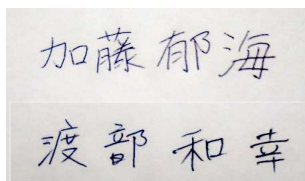 加藤 郁海
渡部 和幸